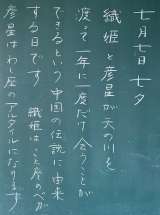 七月七日 七夕
織姫と彦星が天の川を
渡って一年に一度だけ会うことが
できるという中国の伝説に由来
する日です 織姫はこと座のべガ
彦星はわし座のアルタイルになります